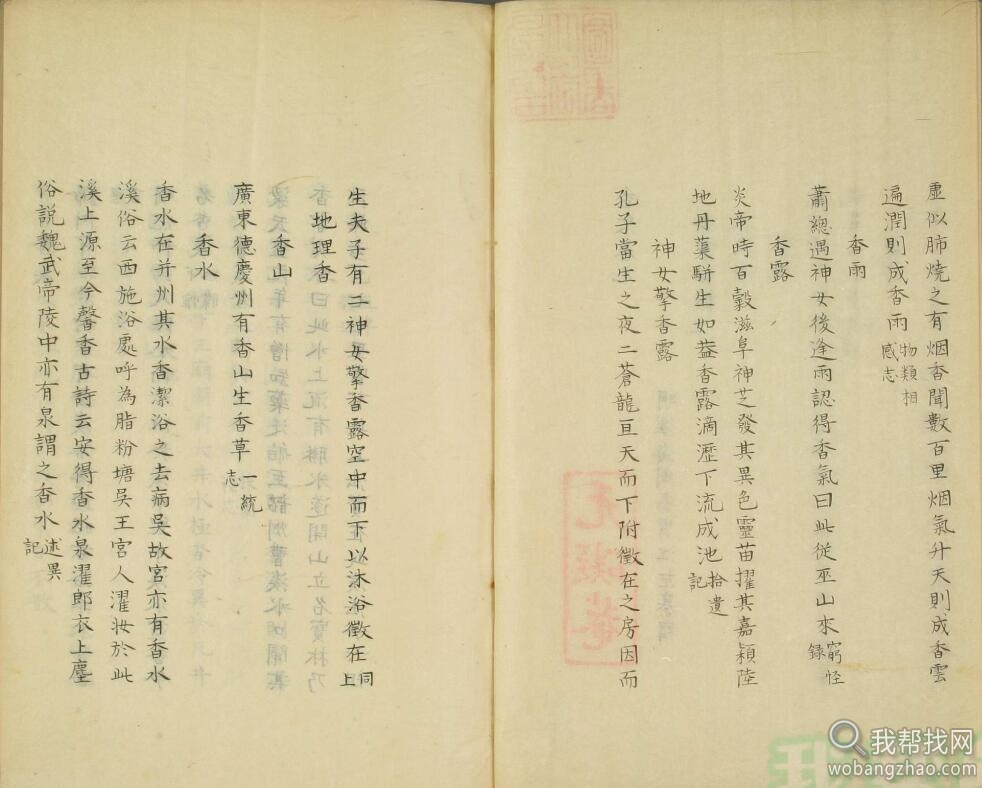 虛似肺燒之有烟香聞數百里烟氣升天則成香雲
遍潤則成香雨物類相感志
香雨
蕭總遇神女後逢雨認得香氣曰此從巫山來窮怪録
香露
炎帝時百穀滋阜神芝發其異色靈苗擢其嘉穎陸
地丹蕖駢生如葢香露滴瀝下流成池拾遺記
神女擎香露
孔子當生之夜二蒼龍亘天而下附徵在之房因而
生夫子有二神女擎香露空中而下以沐浴徵在同上
地理香
香山
廣東德慶州有香山生香草一統志
香水
香水在并州其水香潔浴之去病吳故宮亦有香水
溪俗云西施浴處呼為脂粉塘吳王宮人濯妝於此
溪上源至今馨香古詩云安得香水泉濯郎衣上塵
俗說魏武帝陵中亦有泉謂之香水述異記
我帮找网
wobangzhao.com